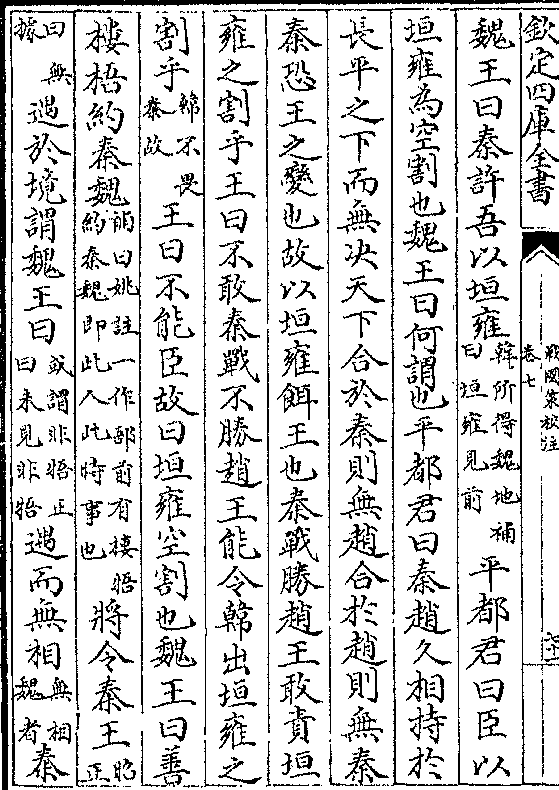 欽定四庫全書
戰國策校注
卷七
魏王曰秦許吾以垣雍韓所得魏地補曰垣雍見前平都君曰臣以
垣雍為空割也魏王曰何謂也平都君曰秦趙久相持於
長平之下而無决天下合於秦則無趙合於趙則無秦
秦恐王之變也故以垣雍餌王也秦戰勝趙王敢責垣
雍之割乎王曰不敢秦戰不勝趙王能令韓出垣雍之
割乎韓不畏秦故王曰不能臣故曰垣雍空割也魏王曰善
樓梧約秦魏補曰姚註一作郚前有樓牾約秦魏即此人此時事也將令秦王昭正
曰無據遇於境謂魏王曰或謂非牾正曰未見非牾遇而無相無相魏者秦